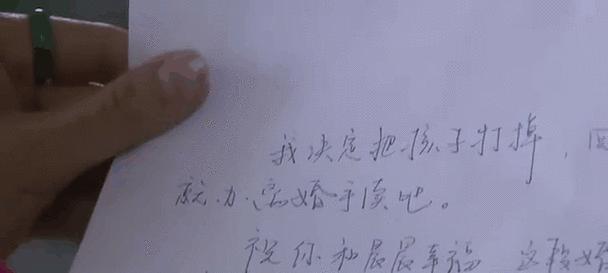 我决定把孩子打掉，回
就办离婚手续吧。
祝你和晨晨幸福，这段婚